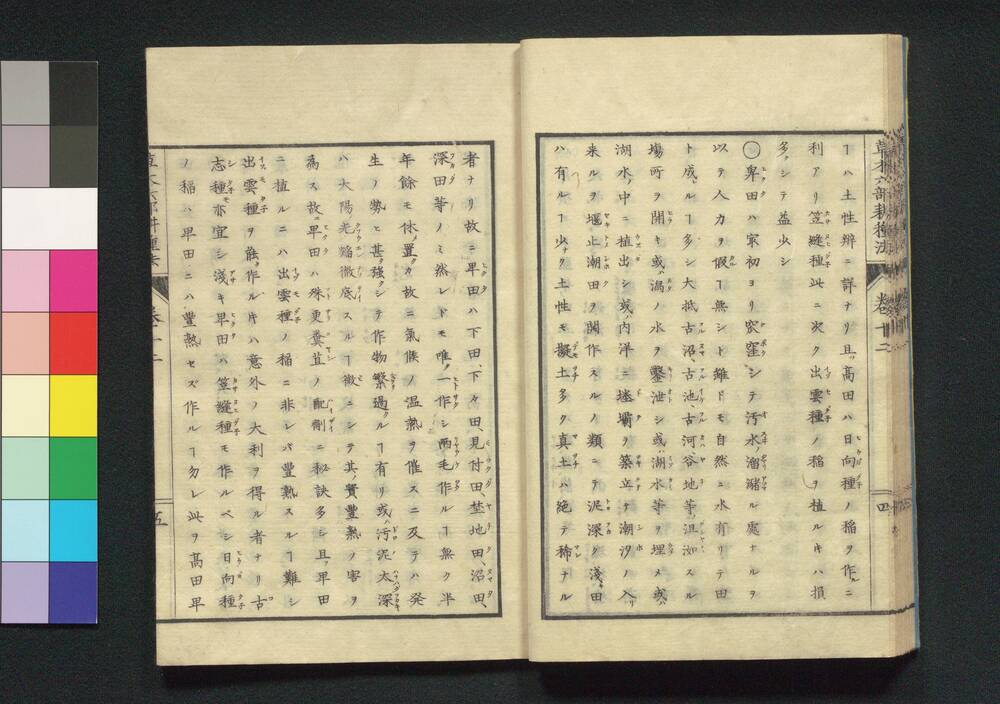 草木六部耕種法　巻十二　四
ヿハ土性辨ニ詳ナリ且高田ハ日向種ノ稲ヲ作ルニ
利アリ笠縫種此ニ次ク出雲種ノ稲ヲ植ルキハ損
多クシテ益少シ
○卑田ハ最初ヨリ窊窪シテ汚水溜瀦ル處ナルヲ
以テ人力ヲ假ヿ無シト雖ドモ自然ニ水有リテ田
ト成ルヿ多シ大抵古沼、古池、古河、谷地等沮洳スル
塲所ヲ開キ或ハ潟ノ水ヲ鑿泄シ或ハ湖水等ヲ埋メ或ハ
湖水ノ中ニ植出シ或ハ内洋ニ塘壩ヲ築立テ潮汐ノ入リ
来ルヲ堰止潮田ヲ開作スルノ類ニテ泥深ク淺キ田
ハ有ルヿ少ナク土性モ擬土多ク真土ハ絶テ稀ナル
者ナリ故ニ卑田ハ下田、下々田、見付田、埜地田、沼田、
深田等ノミ然レドモ唯一作シ両毛作ルヿ無ク半
年餘モ休置クカ故ニ氣候ノ温熱ヲ催スニ及テハ発
生ノ勢ヒ甚強クシテ作物繁過ルヿ有リ或ハ汚泥太深キ
ハ大陽ノ光焔徹底スルヿ微ニシテ其實豊熟ノ害ヲ
為ス故ニ卑田ハ殊更糞苴ノ配劑ニ秘訣多シ且卑田
ニ植ルニハ出雲種ノ稲ニ非レバ豊熟スルヿ難シ
出雲種ヲ能ク作ルキハ意外ノ大利ヲ得ル者ナリ古
志種モ亦宜シ淺キ卑田ハ笠縫種モ作ルベシ日向種
ノ稲ハ卑田ニハ豊熟セズ作ルヿ勿レ此ヲ高田卑
五